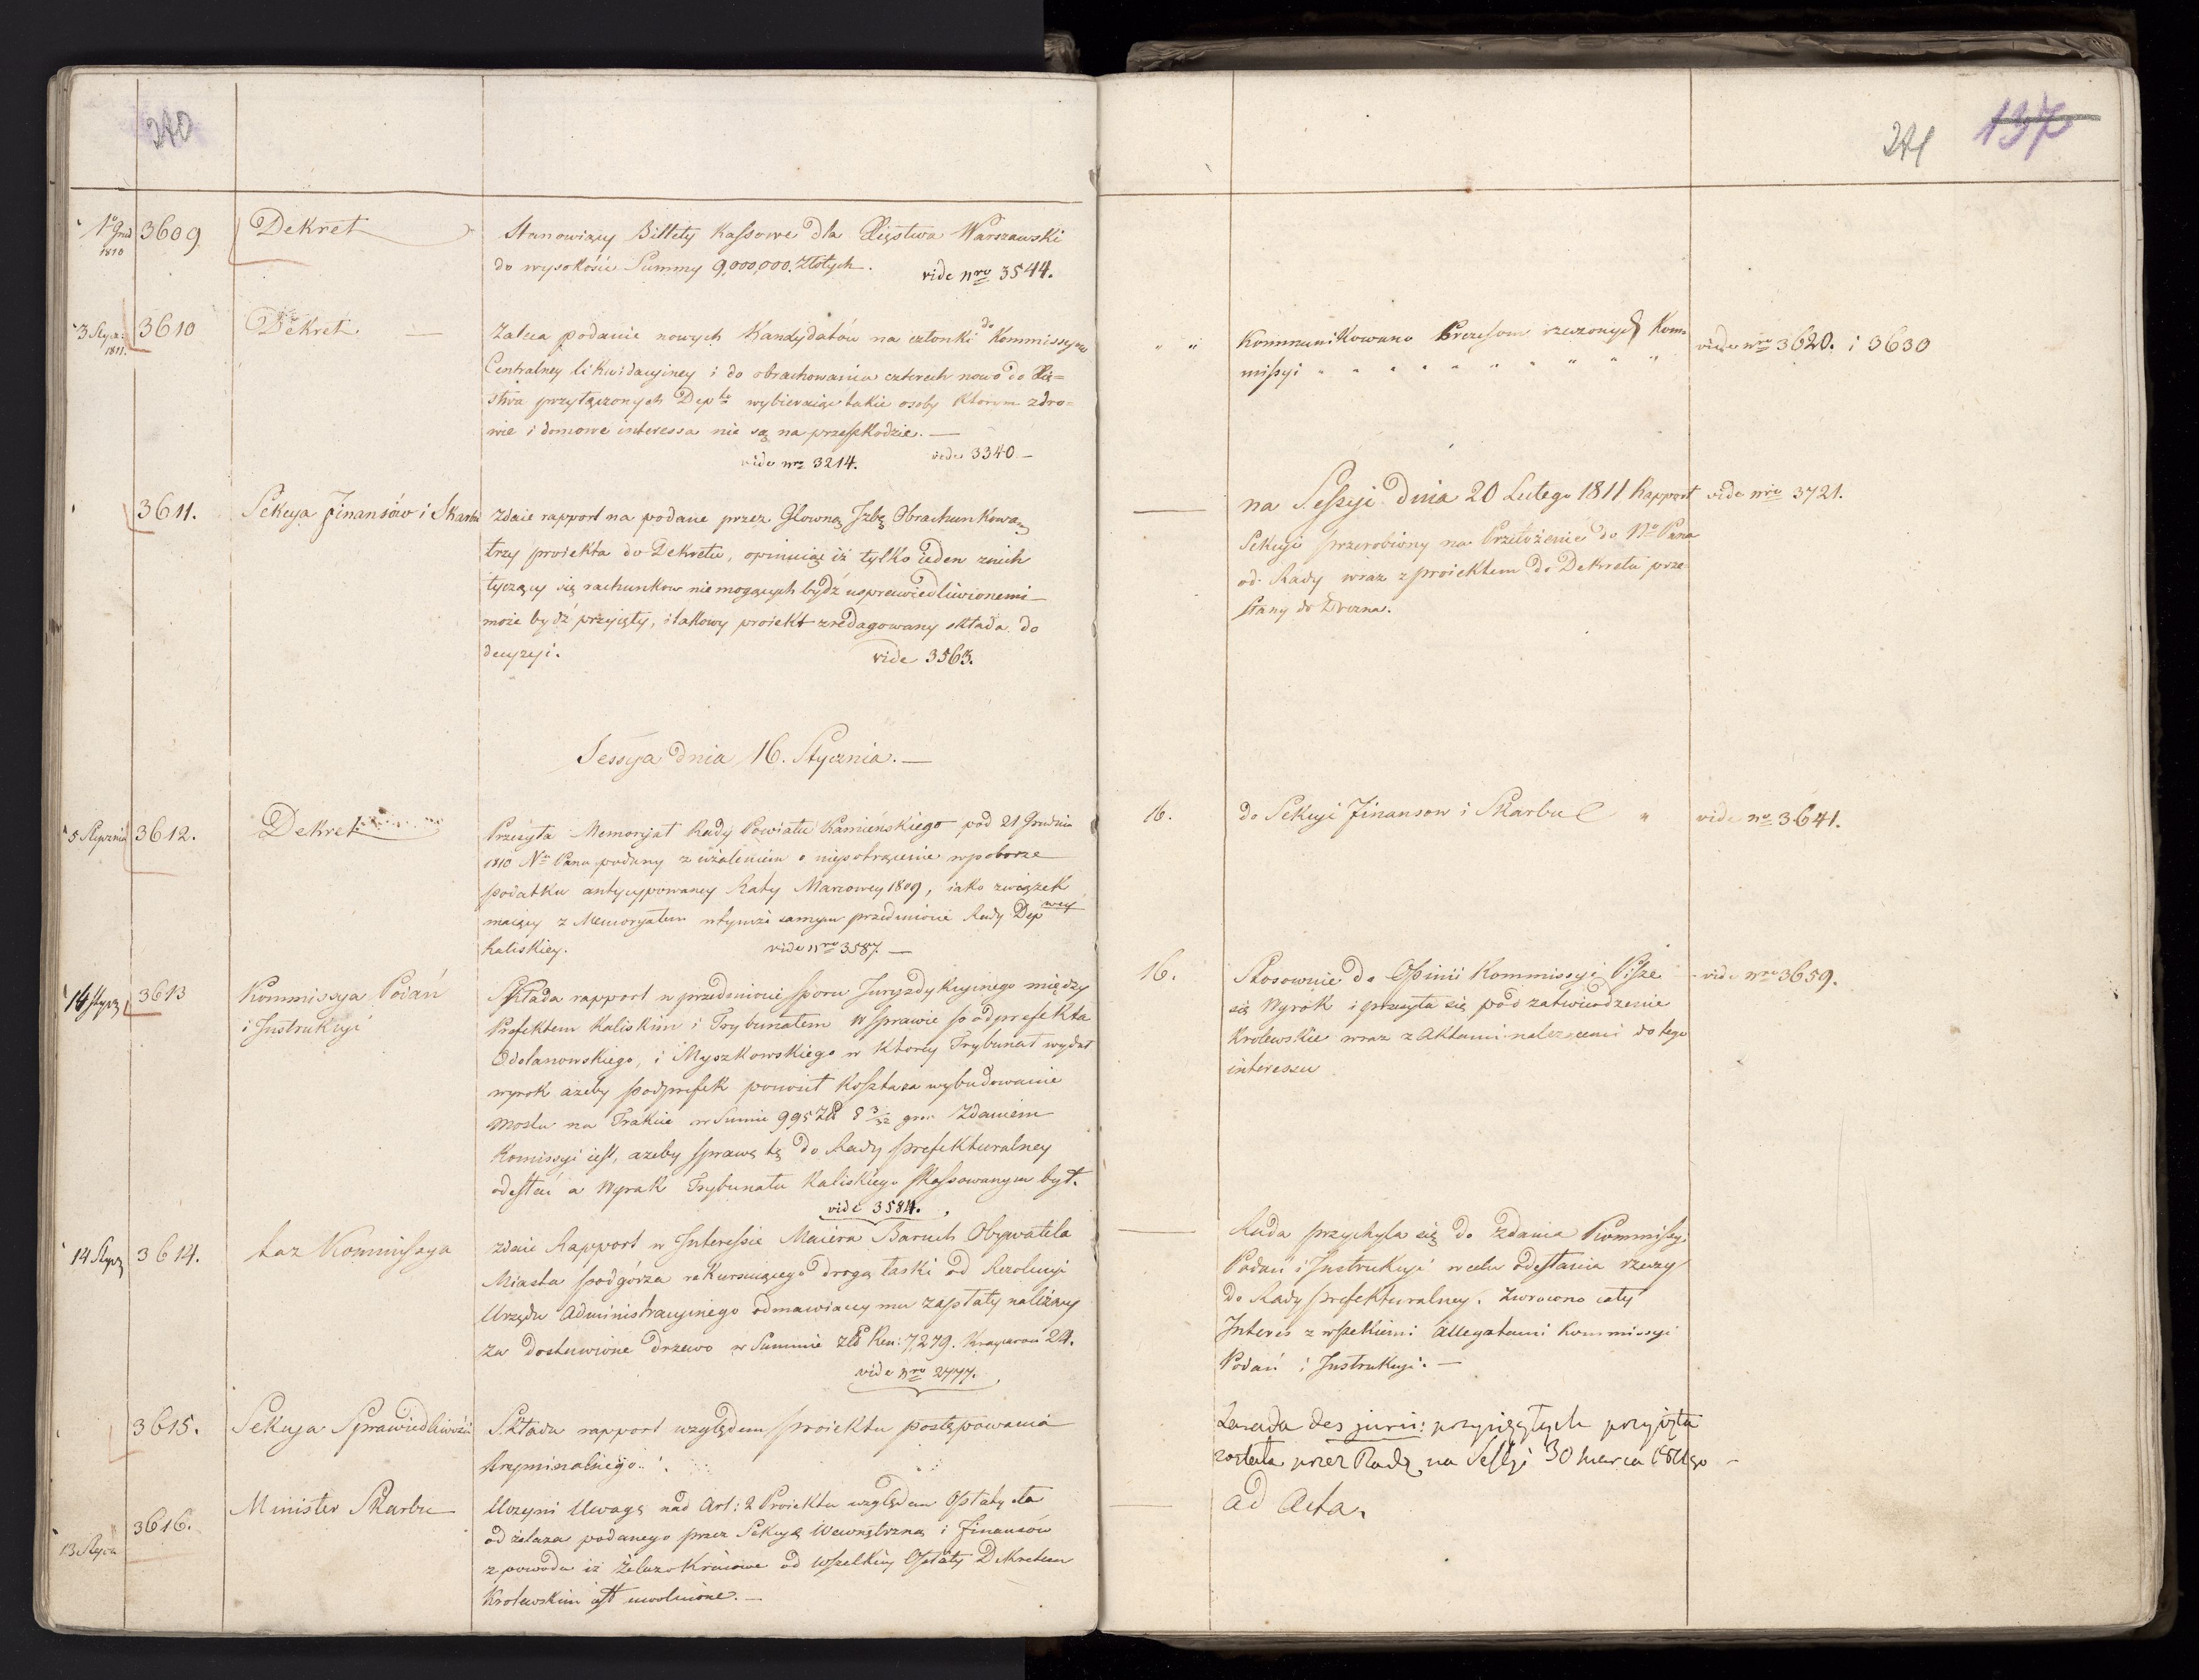 240
241 137
1o Grud 1810 3609 Dekret Stanowiący Billety Kassowe dla Xięstwa Warszawski
do wysokości Summy 9,000,000. Złotych. vide nro 3544.
3 Stycz: 1811. 3610 Dekret — Zaleca podanie nowych Kandydatów na członki do Kommissyow
Centralney likwidacyiney i do obrachowania czterech nowo do Xię=
stwa przyłączonych Depto wybieraiąc takie osoby ktorym zdro=
wie i domowe interessa nie są na przeszkodzie. —
vide nro 3214. vide 3340 —
" " Kommunikowano Prezesom rzeczonych Kom=
missyi " " " " " " " " "
vide nro 3620. i 3630
3611. Sekcya Finansów i Skarbu Zdaie rapport na podane przez Głowną Izbę Obrachunkową
trzy proiekta do Dekretu, opiniuiąc iż tylko ieden znich
tyczący się rachunkow nie mogących bydź usprawiedliwionemi
może bydź przyięty, i takowy proiekt zredagowany składa do
decyzyi. vide 3563.
— na Sessyi dnia 20 Lutego 1811 Rapport vide nro 3721.
Sekcyi przerobiony na Przełożenie do No Pana
od Rady wraz z proiektem do Dekretu prze
słany do Drezna.
Sessya dnia 16. Stycznia. —
5 Stycznia 3612. Dekret Przesyła Memoryał Rady Powiatu Kamieńskiego pod 21 Grudnia
1810 No Panu podany z użaleniem o niepotrącenie w poborze
podatku antycypowaney Raty Marcowey 1809, iako związek
maiący z Memoryałem w tymże samym przedmiocie Rady Depwey
Kaliskiey. vide nro 3587. —
16. do Sekcyi Finansow i Skarbu " vide no 3641.
14 Stycz 3613 Kommissya Podań
i Instrukcyi
Składa rapport w przedmiocie sporu Juryzdykcyinego między
Prefektem Kaliskim i Trybunałem w sprawie podprefekta
Odolanowskiego, i Myszkowskiego w ktorey Trybunał wydał
wyrok ażeby podprefek powrócił Koszta za wybudowanie
Mostu na Trakcie w Sumie 995 Zł 8 3/32 gro. Zdaniem
Komissyi iest, ażeby sprawę tę do Rady prefekturalney
odesłać a Wyrok Trybunału Kaliskiego skassowanym był.
vide 3584.
16. Stosownie do Opinii Kommissyi Pisze
się Wyrok i przesyła się pod zatwierdzenie
Krolewskie wraz z Aktami należącemi do tego
interessu
vide nro 3659.
14 Stycz 3614. taz Kommissya zdaie Rapport w Interessie Maiera Baruch Obywatela
Miasta podgórza rekuruiącego drogą łaski od Rezolucyi
Urzędu Administracyinego odmawiaiącey mu zapłaty należącey
za dostawione drzewo w Summie złł Ren: 7,279. Kraycarow 24.
vide nro 2777.
— Rada przychyla się do zdania Kommissyi
Podań i Instrukcyi w celu odesłania rzeczy
do Rady prefekturalney. Zwrocono cały
Interes z wszelkiemi allegatami Kommissyi
Podań i Instrukcyi. —
3615. Sekcya Sprawiedliwości Składa rapport względem proiektu postępowania
kryminalnego.
Zasada des jurii: przysięgłych przyjęta
została przez Radę na Sessyi 30 Marca 1811go
13 Stycz 3616. Minister Skarbu Uczyni Uwagę nad Art: 2 Proiektu względem Opłaty cła
od żelaza podanego przez Sekcyą Wewnętrzną i Finansów
z powodu iż żelazo Kraiowe od wszelkiey Opłaty Dekretem
Krolewskim iest uwolnione. —
— ad Acta.